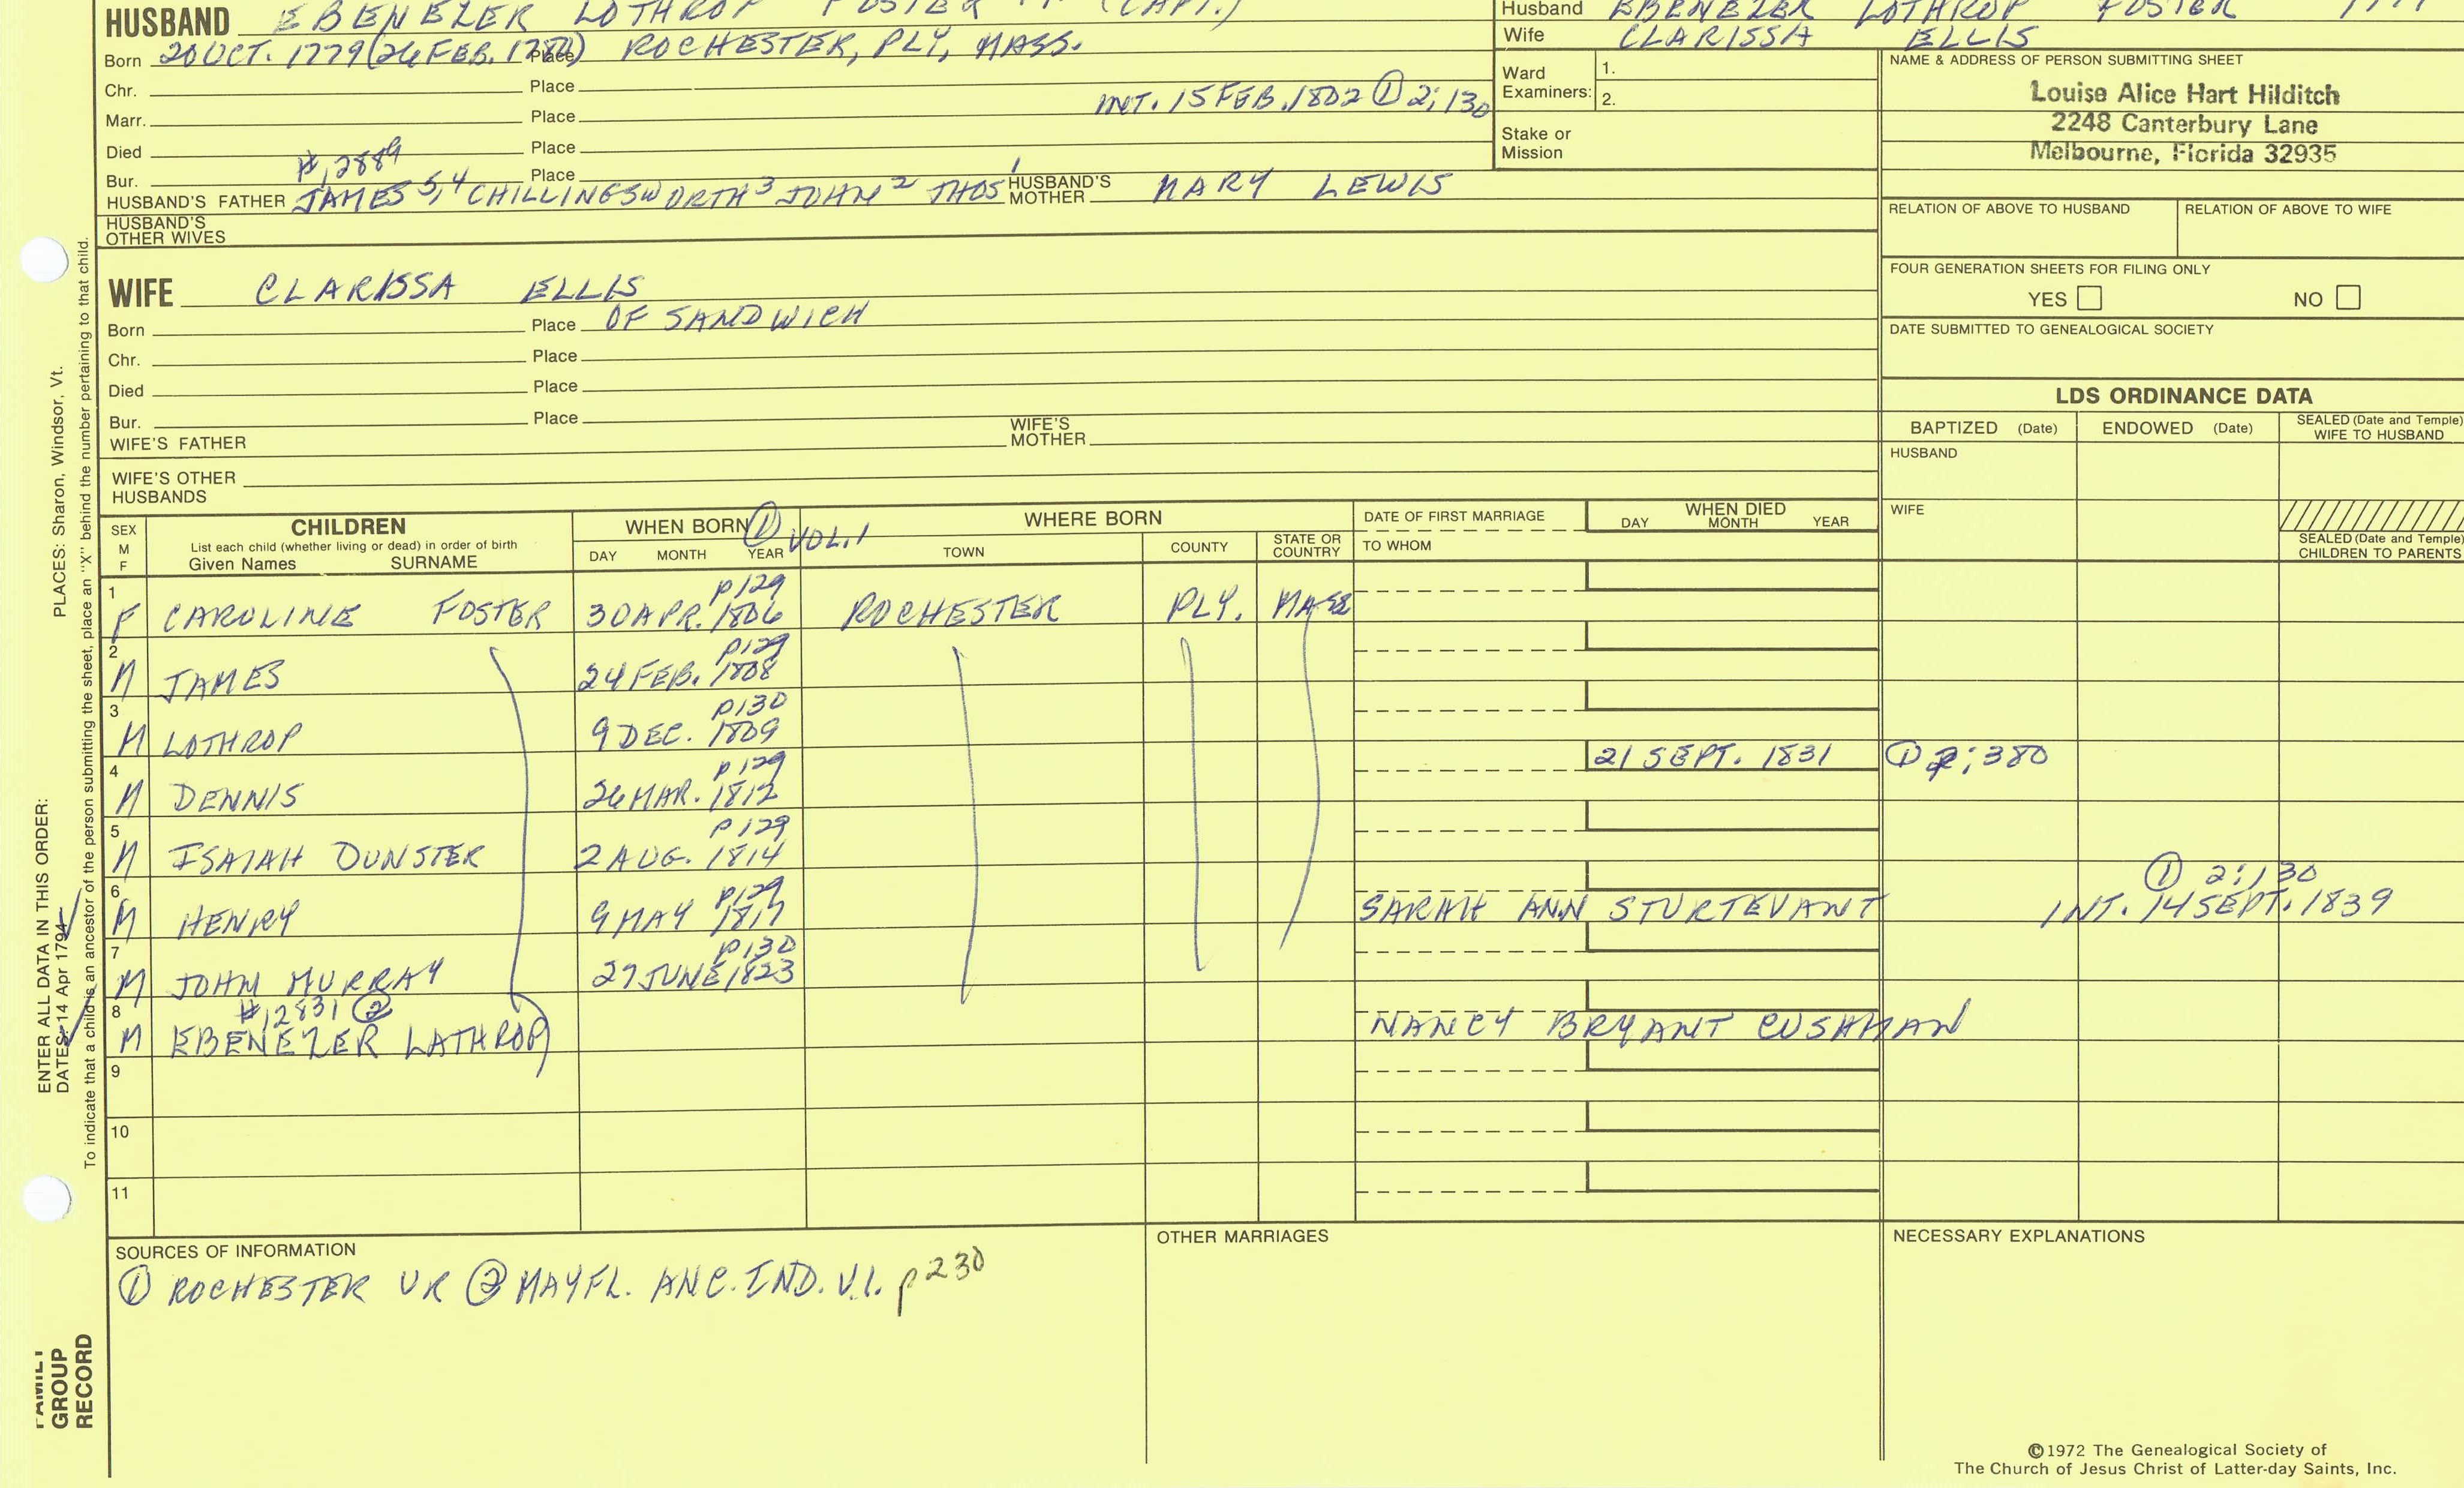 HUSBAND EBENEZER LOTHROP FOSTER (CAPT.)
Born 20 OCT. 1779 (26 FEB. Place ROCHESTER, PLY, MASS.
Chr. Place
INT. 15 FEB. 1802 ① 2;130
Marr. Place
Died Place
#,2889
Bur. Place
HUSBAND'S FATHER JAMES 5,4 CHILLINGSWORTH 3 JOHN 2 THOS 1 HUSBAND'S MOTHER MARY LEWIS
HUSBAND'S
OTHER WIVES
Husband EBENEZER LOTHROP FOSTER
Wife CLARISSA ELLIS
Ward
Examiners:
1.
2.
Stake or
Mission
NAME & ADDRESS OF PERSON SUBMITTING SHEET
Louise Alice Hart Hilditch
2248 Canterbury Lane
Melbourne, Florida 32935
RELATION OF ABOVE TO HUSBAND RELATION OF ABOVE TO WIFE
FOUR GENERATION SHEETS FOR FILING ONLY
YES NO
DATE SUBMITTED TO GENEALOGICAL SOCIETY
WIFE CLARISSA ELLIS
Born Place OF SANDWICH
Chr. Place
Died Place
Bur. Place
WIFE'S FATHER WIFE'S MOTHER
WIFE'S OTHER
HUSBANDS
LDS ORDINANCE DATA
BAPTIZED (Date) ENDOWED (Date) SEALED (Date and Temple)
WIFE TO HUSBAND
HUSBAND
WIFE
SEALED (Date and Temple)
CHILDREN TO PARENTS
SEX
M
F
CHILDREN
List each child (whether living or dead) in order of birth
Given Names SURNAME
WHEN BORN ① VOL. 1
DAY MONTH YEAR
WHERE BORN
TOWN COUNTY STATE OR COUNTRY
DATE OF FIRST MARRIAGE
TO WHOM
WHEN DIED
DAY MONTH YEAR
1 p129
F CAROLINE FOSTER 30 APR. 1806 ROCHESTER PLY. MASS
2 p129
M JAMES 24 FEB. 1808
3 p130
M LOTHROP 9 DEC. 1809
4 p129 21 SEPT. 1831 ① 2;380
M DENNIS 26 MAR. 1812
5 p129
M ISAIAH DUNSTER 2 AUG. 1814
6 p129 ① 2;130
M HENRY 9 MAY 1817 SARAH ANN STURTEVANT INT. 14 SEPT. 1839
7 p130
M JOHN MURRAY 27 JUNE 1823
8 #,2831 ②
M EBENEZER LATHROP NANCY BRYANT CUSHMAN
9
10
11
SOURCES OF INFORMATION
① ROCHESTER VR ② MAYFL. ANC. IND. V.1. p230
OTHER MARRIAGES
NECESSARY EXPLANATIONS
©1972 The Genealogical Society of
The Church of Jesus Christ of Latter-day Saints, Inc.
PLACES: Sharon, Windsor, Vt.
ENTER ALL DATA IN THIS ORDER:
DATES: 14 Apr 1794
To indicate that a child is an ancestor of the person submitting the sheet, place an "X" behind the number pertaining to that child.
FAMILY
GROUP
RECORD